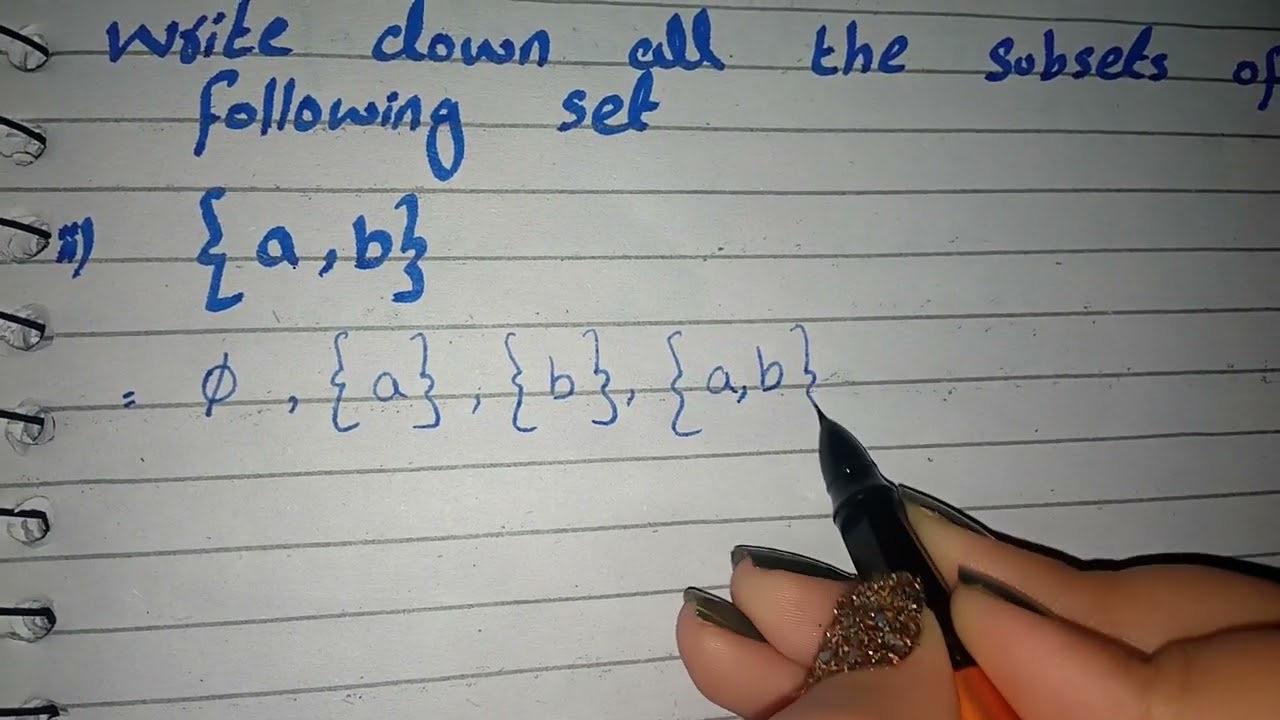 write down all the subsets of
following set
ii) {a,b}
= ϕ, {a}, {b}, {a,b}